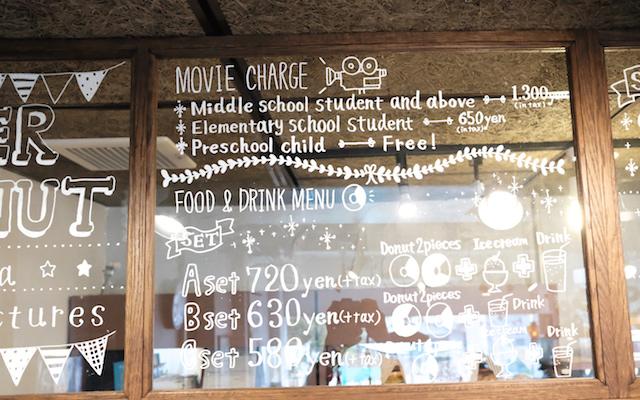 ER
NUT
a
ctures
MOVIE CHARGE
Middle school student and above 1.300yen
(in tax)
Elementary school student 650yen
(in tax)
Preschool child Free!
FOOD & DRINK MENU
SET
Donut 2pieces Ice cream Drink
A set 720yen(+tax)
Donut 2pieces Drink
B set 630yen(+tax)
Ice cream Drink
C set 580yen(+tax)